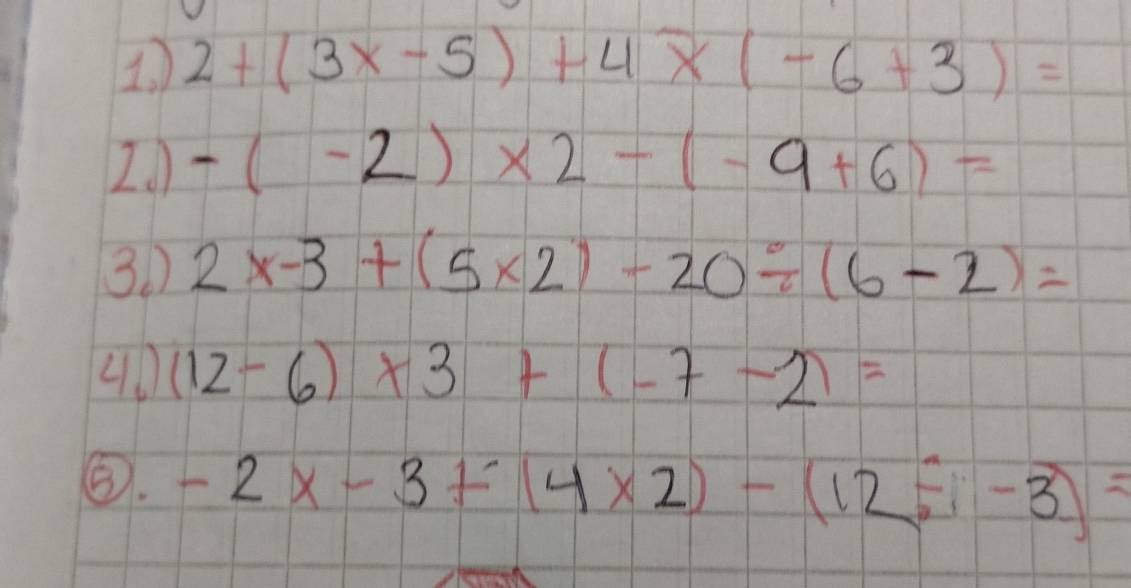 1.) 2 + ( 3 x - 5 ) + 4 x ( - 6 + 3 ) =
2.) - ( - 2 ) x 2 - ( - 9 + 6 ) =
3.) 2 x - 3 + ( 5 x 2 ) - 20 ÷ ( 6 - 2 ) =
4.) ( 12 - 6 ) x 3 + ( - 7 - 2 ) =
5. - 2 x - 3 + - ( 4 x 2 ) - ( 12 ÷ - 3 ) =